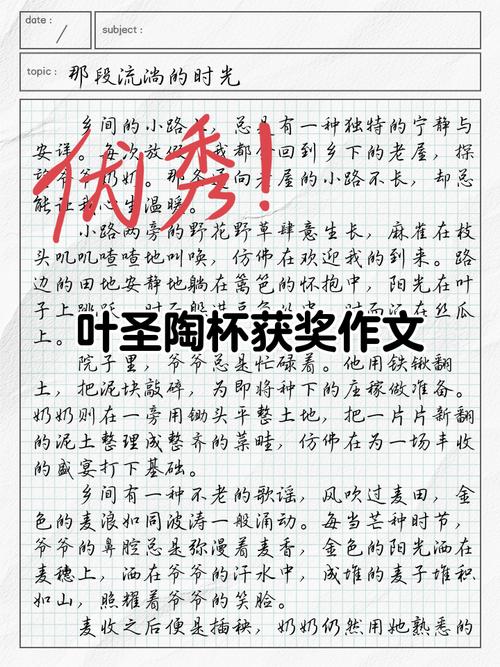 date :
subject :
topic : 那段流淌的时光
乡间的小路，总是有一种独特的宁静与
安详。每次放假，我都会回到乡下的老屋，探
爷爷奶奶。那条通向老屋的小路不长，却总
能让我心生温暖。
优秀！
小路两旁的野花野草肆意生长，麻雀在枝
头叽叽喳喳地叫唤，仿佛在欢迎我的到来。路
边的田地安静地躺在篱笆的怀抱中，阳光在叶
子上跳跃，时而洒在丝瓜
上。
叶圣陶杯获奖作文
院子里，爷爷总是忙碌着。他用铁锹翻
土，把泥块敲碎，为即将种下的庄稼做准备。
奶奶则在一旁用锄头平整土地，把一片片新翻
的泥土整理成整齐的菜畦，仿佛在为一场丰收
的盛宴打下基础。
乡间有一种不老的歌谣，风吹过麦田，金
色的麦浪如同波涛一般涌动。每当芒种时节，
爷爷的鼻腔总是弥漫着麦香，金色的阳光洒在
麦穗上，洒在爷爷的汗水中，成堆的麦子堆积
如山，照耀着爷爷的笑脸。
麦收之后便是插秧，奶奶仍然用她熟悉的